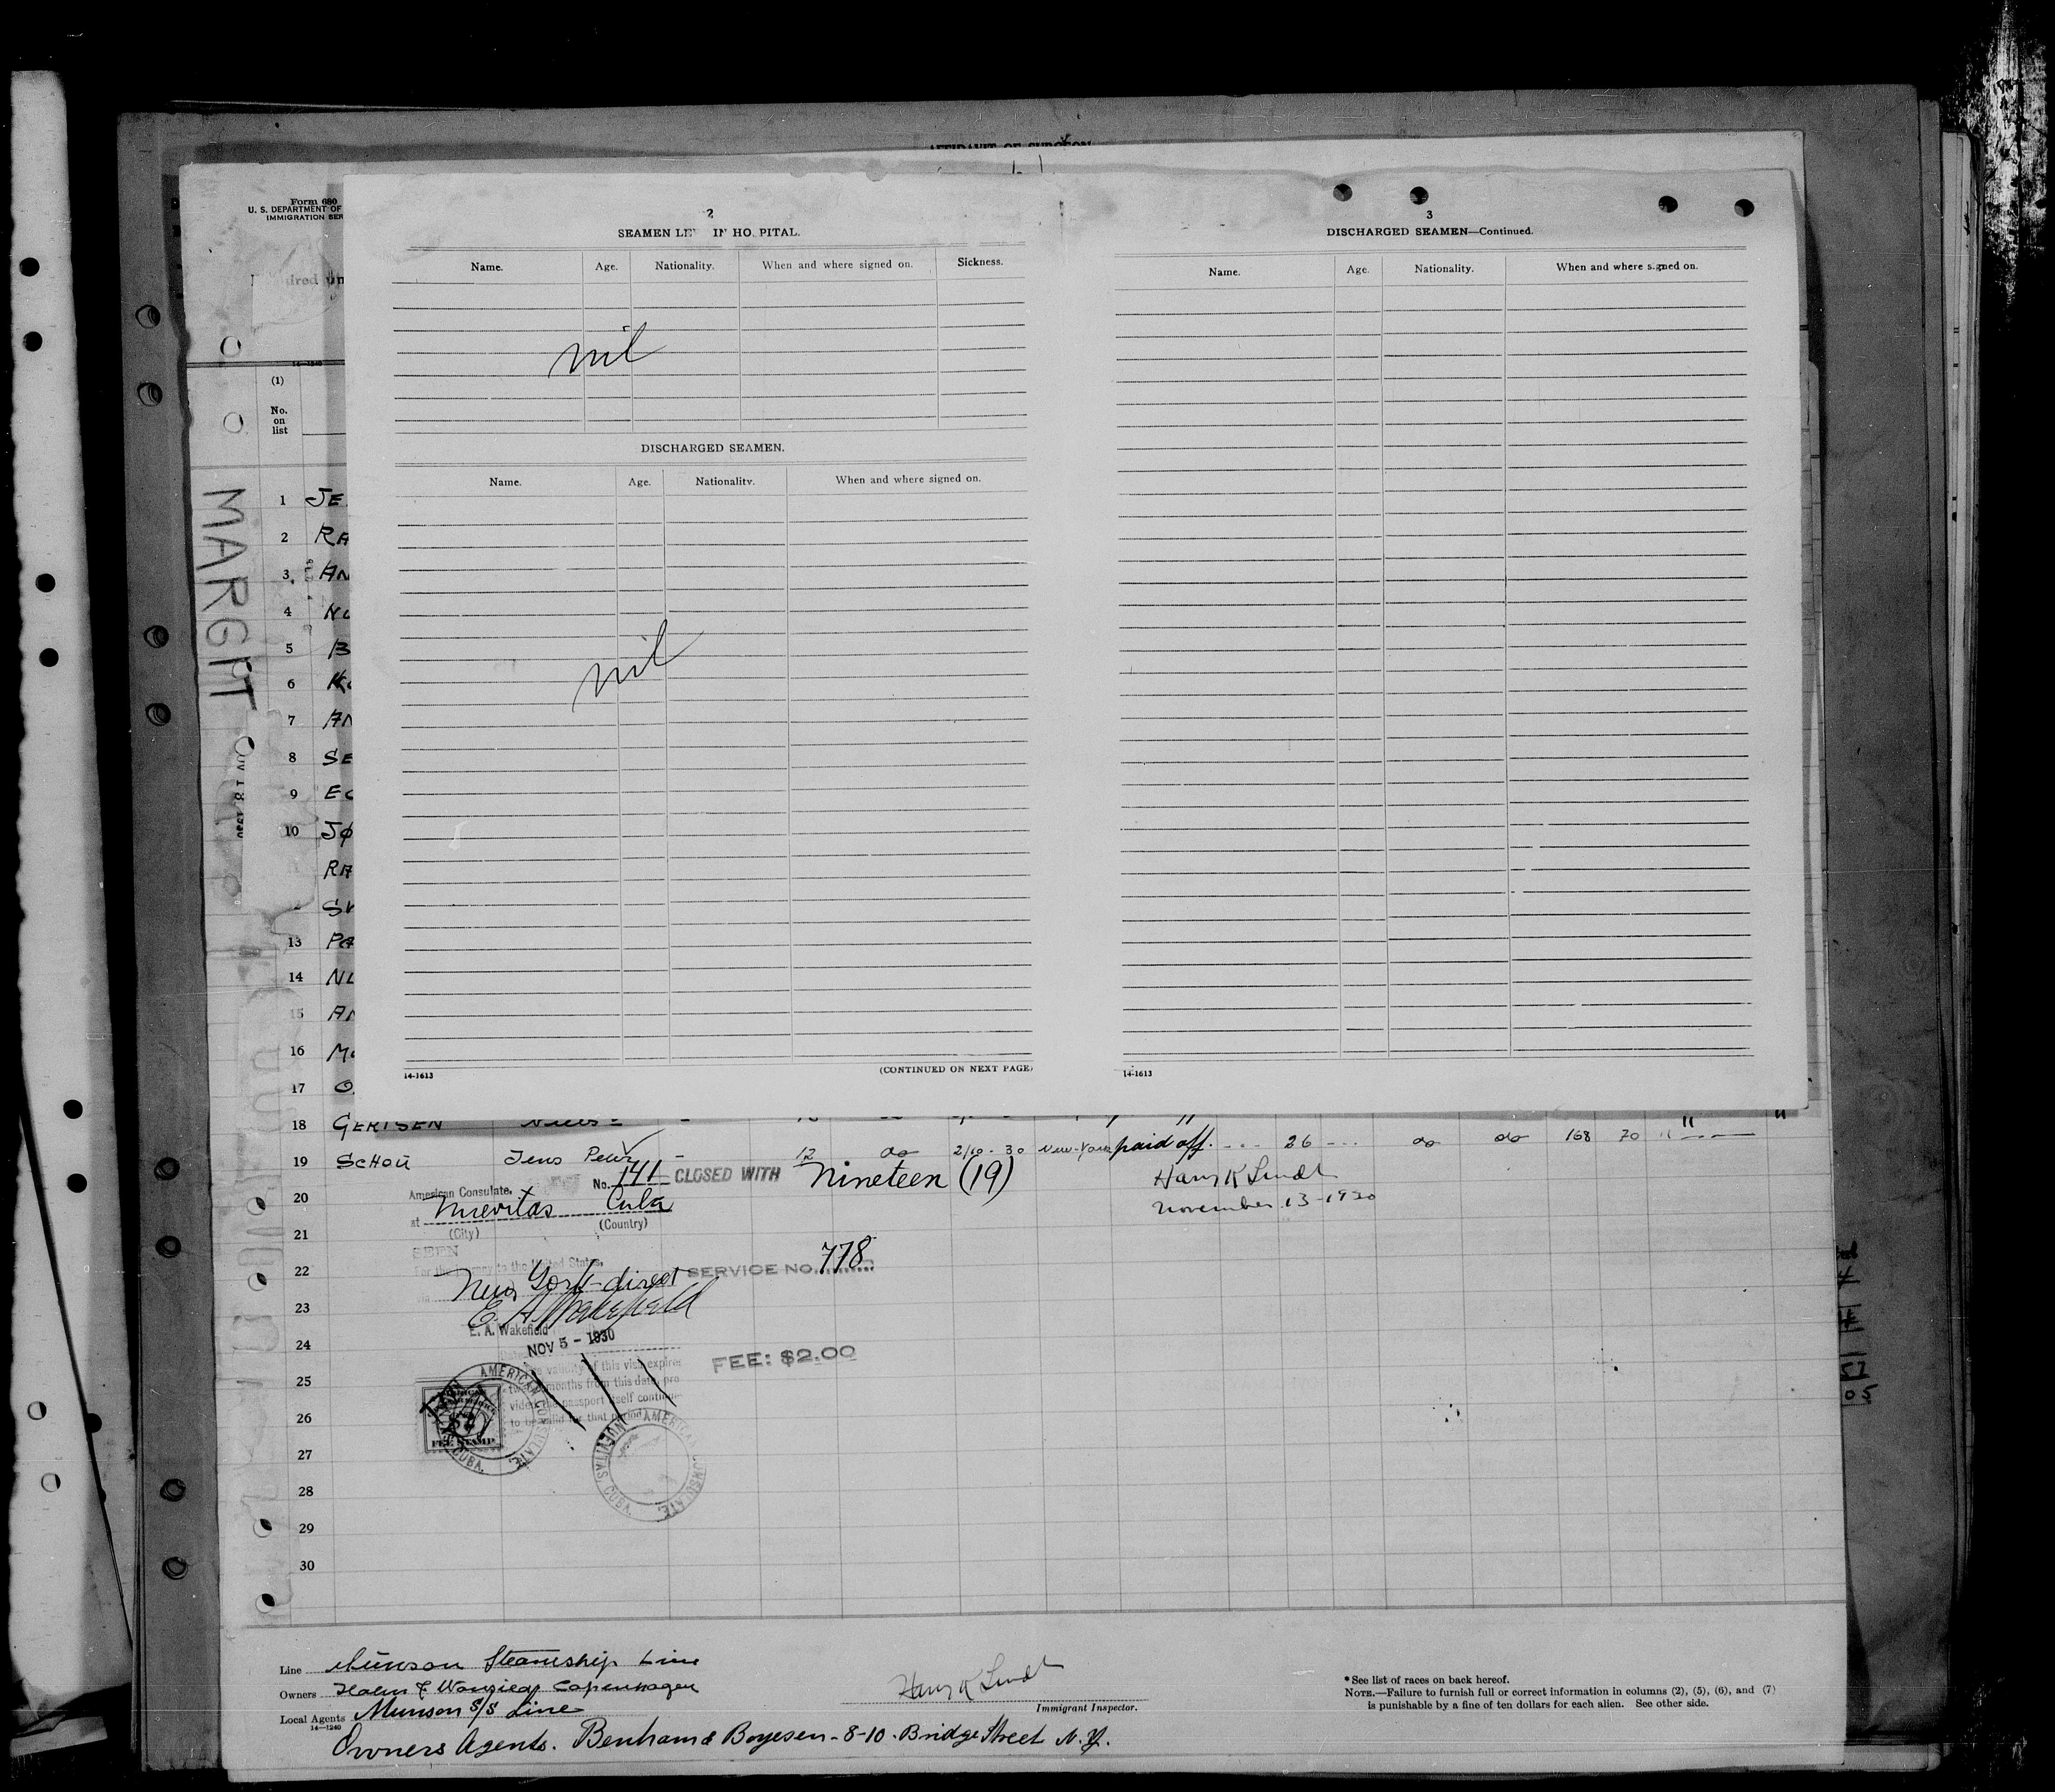 AFFIDAVIT OF SURGEON
Form 680
U. S. DEPARTMENT OF
IMMIGRATION SER
14—1240
(1)
No.
on
list
MARGIT
2
SEAMEN LE IN HO PITAL.
Name. Age. Nationality. When and where signed on. Sickness.
nil
DISCHARGED SEAMEN.
Name. Age. Nationality. When and where signed on.
nil
14-1613 (CONTINUED ON NEXT PAGE)
3
DISCHARGED SEAMEN—Continued.
Name. Age. Nationality. When and where signed on.
14-1613
1 JE
2 RA
3 AN
4
5 B
6
7 AN
8 SE
9
10 JØ
RA
13 PA
14
15
16
17 O
18 GERTSEN
19 SCHOÜ Jens 12 do 2/10-30 New-York paid off. 26 do do 168 70
No. 141 CLOSED WITH Nineteen (19) Harry K Lindt
20 American Consulate,
at Nuevitas Cuba November 13-1930
(City) (Country)
21
SEEN
For the journey to the United States,
22 New York-direct SERVICE NO. 778
23 E. A. Wakefield
E. A. Wakefield
24 NOV 5 - 1930
FEE: $2.00
validity of this visa expires
25 twelve months from this date pro
vided the passport itself continues
26 to be valid for that period
27
28
29
30
AMERICAN CONSULATE,
CUBA.
FEE STAMP
AMERICAN CONSULATE,
NUEVITAS, CUBA.
Line Munson Steamship Line
Owners Copenhagen
Local Agents Munson S/S Line
14—1240
Owners Agents. Benham & Boyesen - 8-10 - Bridge Street N.Y.
Harry K Lindt
Immigrant Inspector.
* See list of races on back hereof.
NOTE.—Failure to furnish full or correct information in columns (2), (5), (6), and (7)
is punishable by a fine of ten dollars for each alien. See other side.